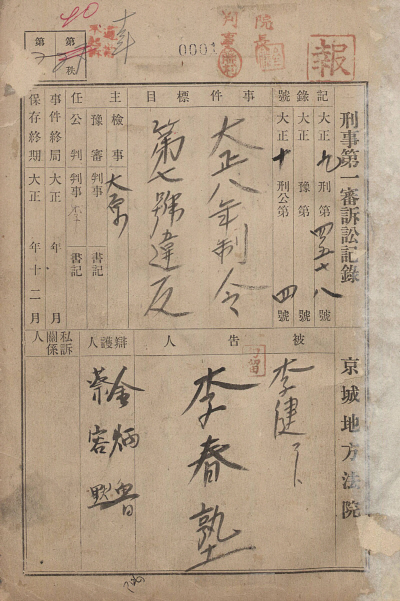 報
0001
刑事第一審訴訟記錄
京城地方法院
記錄號
大正九刑第四五十八號
大正 豫第 號
大正十刑公第 四號
事件標目
大正八年制令
第七號違反
主任
檢事 大原
豫審判事 書記
公判判事 書記
事件終局 大正 年 月
保存終期 大正 年十二月
被告人
李健
李春塾
辯護人
金炳魯
私訴關係人